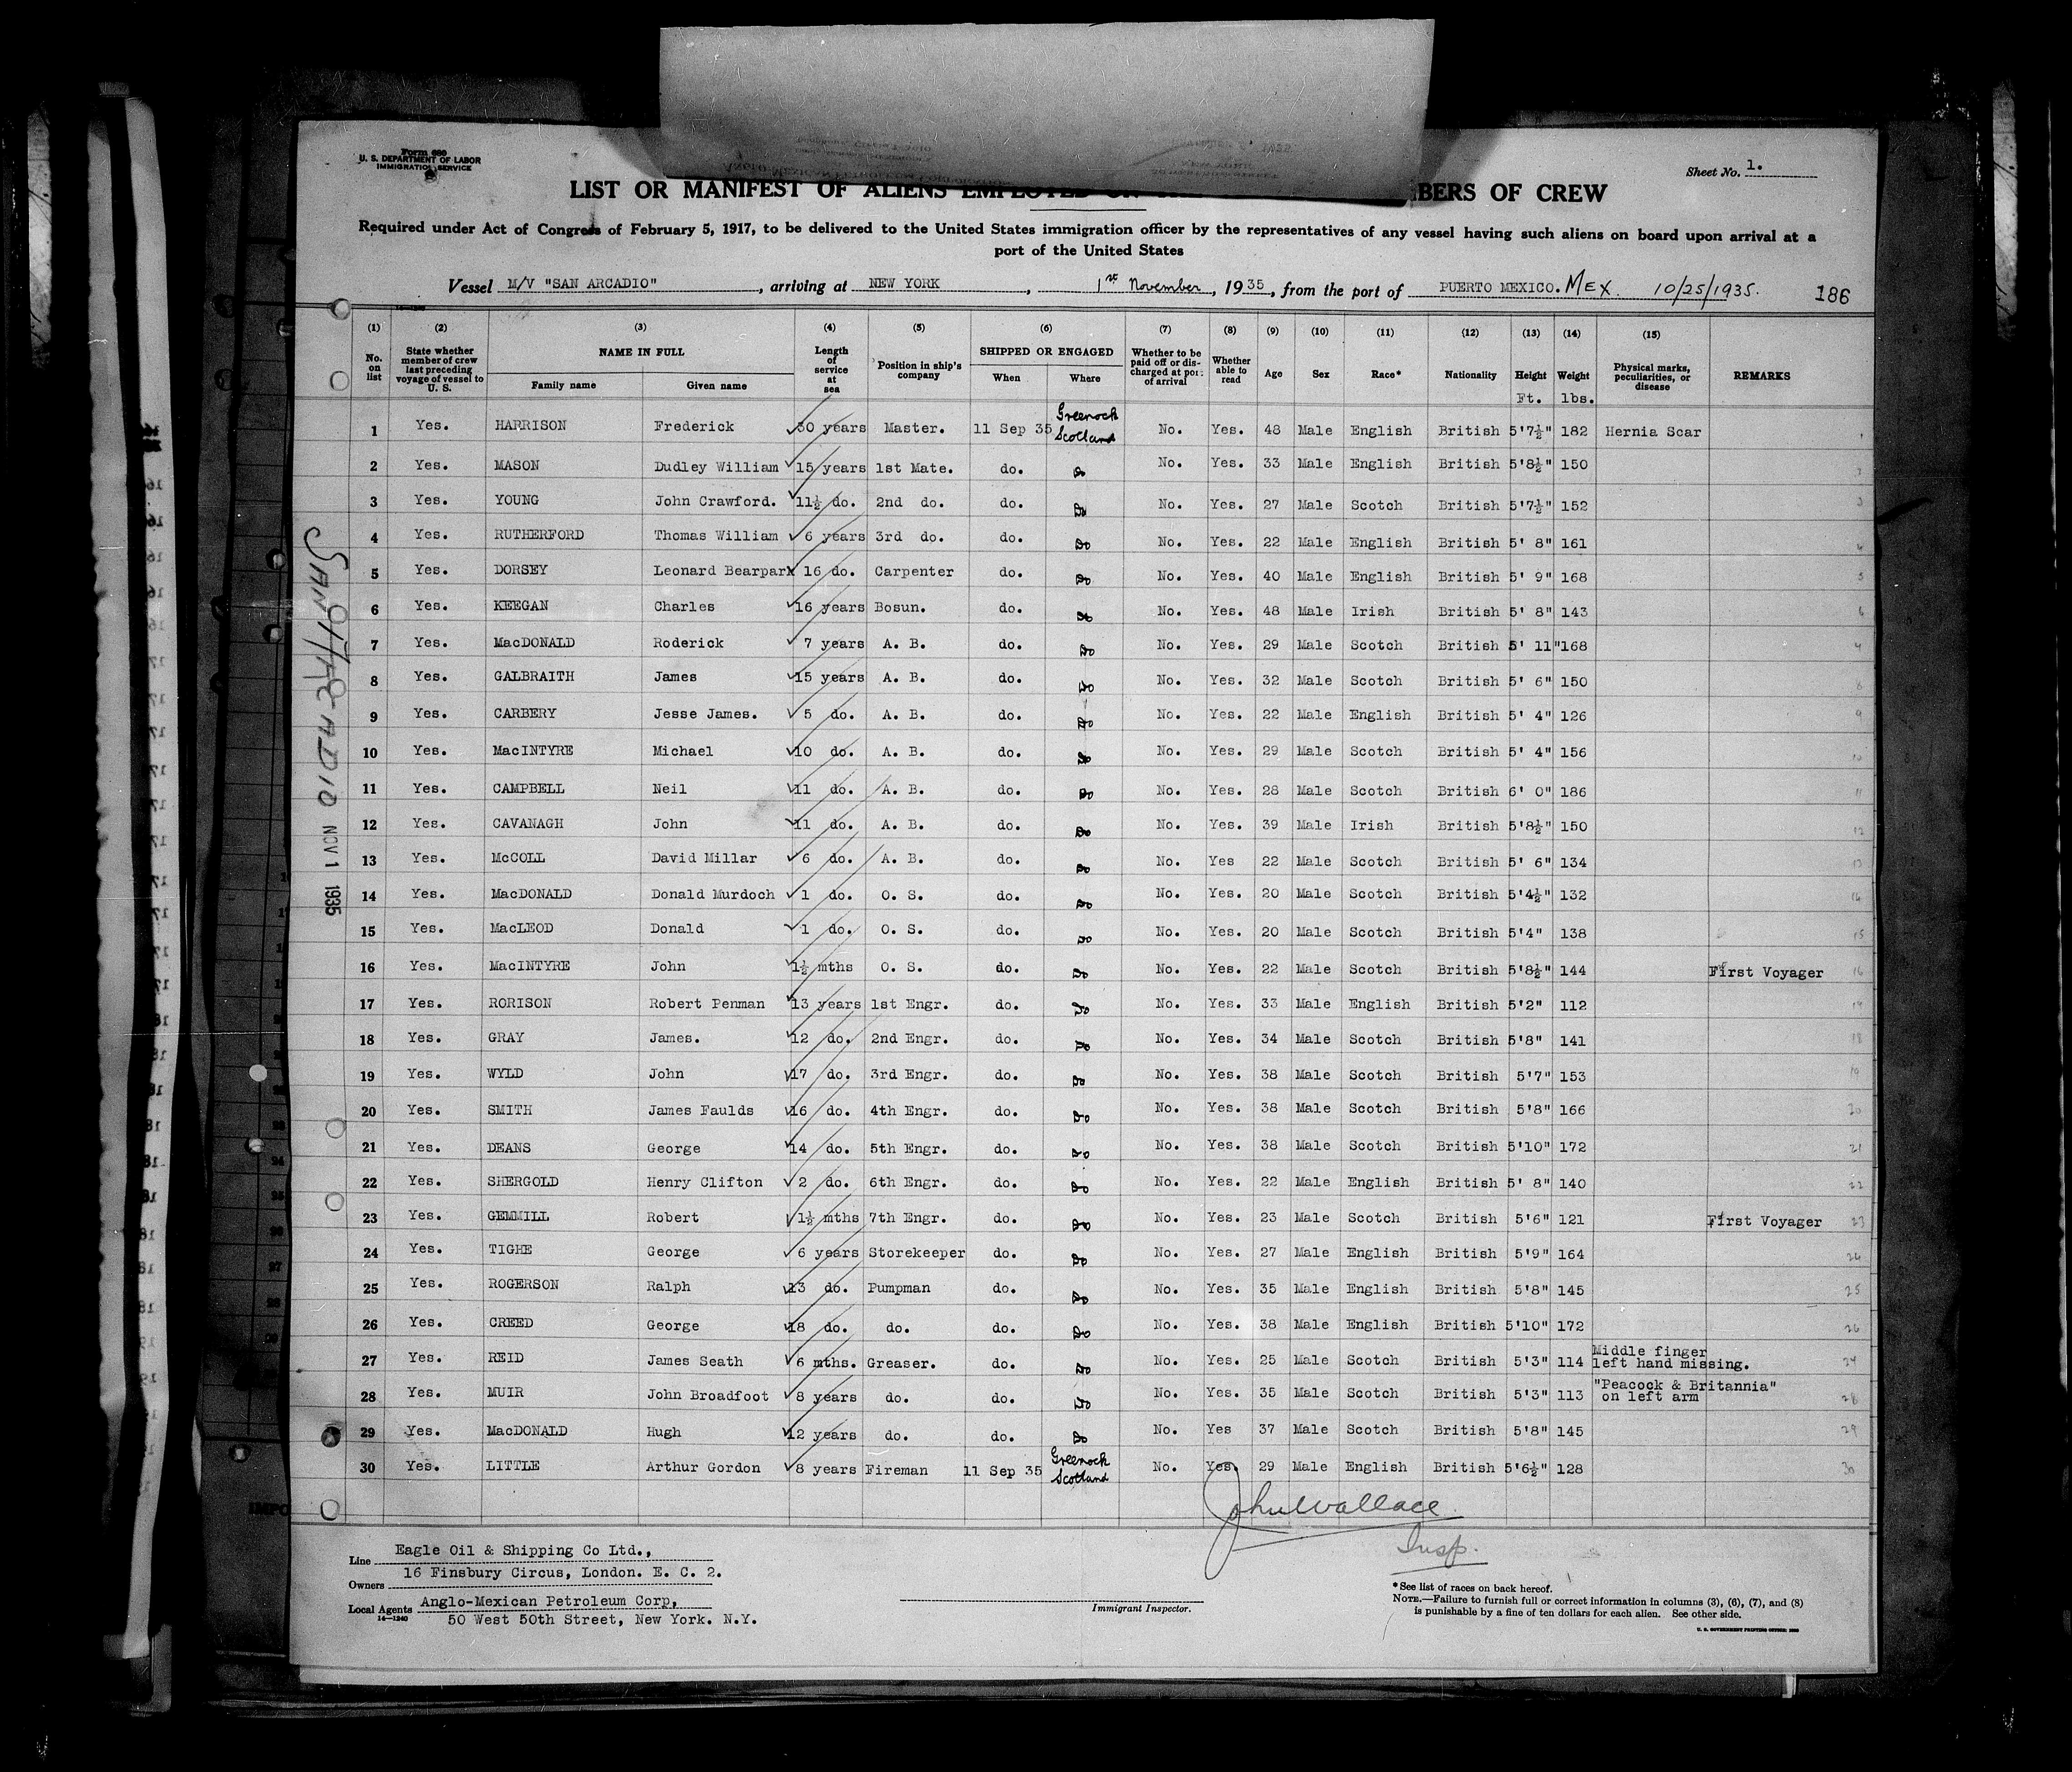 Form 680
U. S. DEPARTMENT OF LABOR
IMMIGRATION SERVICE
Sheet No. 1.
LIST OR MANIFEST OF ALIENS EMPLOYED ON BERS OF CREW
Required under Act of Congress of February 5, 1917, to be delivered to the United States immigration officer by the representatives of any vessel having such aliens on board upon arrival at a
port of the United States
Vessel M/V "SAN ARCADIO", arriving at NEW YORK, 1st November, 1935, from the port of PUERTO MEXICO. MEX. 10/25/1935. 186
(1) (2) (3) (4) (5) (6) (7) (8) (9) (10) (11) (12) (13) (14) (15)
No. on list State whether member of crew last preceding voyage of vessel to U. S. NAME IN FULL Family name Given name Length of service at sea Position in ship's company SHIPPED OR ENGAGED When Where Whether to be paid off or discharged at port of arrival Whether able to read Age Sex Race* Nationality Height Ft. Weight lbs. Physical marks, peculiarities, or disease REMARKS
1 Yes. HARRISON Frederick 30 years Master. 11 Sep 35 Greenock Scotland No. Yes. 48 Male English British 5'7½" 182 Hernia Scar
2 Yes. MASON Dudley William 15 years 1st Mate. do. do No. Yes. 33 Male English British 5'8½" 150
3 Yes. YOUNG John Crawford. 11½ do. 2nd do. do. do No. Yes. 27 Male Scotch British 5'7½" 152
4 Yes. RUTHERFORD Thomas William 6 years 3rd do. do. do No. Yes. 22 Male English British 5' 8" 161
5 Yes. DORSEY Leonard Bearpark 16 do. Carpenter do. do No. Yes. 40 Male English British 5' 9" 168
6 Yes. KEEGAN Charles 16 years Bosun. do. do No. Yes. 48 Male Irish British 5' 8" 143
7 Yes. MacDONALD Roderick 7 years A. B. do. do No. Yes. 29 Male Scotch British 5' 11" 168
8 Yes. GALBRAITH James 15 years A. B. do. do No. Yes. 32 Male Scotch British 5' 6" 150
9 Yes. CARBERY Jesse James. 5 do. A. B. do. do No. Yes. 22 Male English British 5' 4" 126
10 Yes. MacINTYRE Michael 10 do. A. B. do. do No. Yes. 29 Male Scotch British 5' 4" 156
11 Yes. CAMPBELL Neil 11 do. A. B. do. do No. Yes. 28 Male Scotch British 6' 0" 186
12 Yes. CAVANAGH John 11 do. A. B. do. do No. Yes. 39 Male Irish British 5'8½" 150
13 Yes. McCOLL David Millar 6 do. A. B. do. do No. Yes 22 Male Scotch British 5' 6" 134
14 Yes. MacDONALD Donald Murdoch 1 do. O. S. do. do No. Yes. 20 Male Scotch British 5'4½" 132
15 Yes. MacLEOD Donald 1 do. O. S. do. do No. Yes. 20 Male Scotch British 5'4" 138
16 Yes. MacINTYRE John 1½ mths O. S. do. do No. Yes. 22 Male Scotch British 5'8½" 144 First Voyager
17 Yes. RORISON Robert Penman 13 years 1st Engr. do. do No. Yes. 33 Male English British 5'2" 112
18 Yes. GRAY James. 12 do. 2nd Engr. do. do No. Yes. 34 Male Scotch British 5'8" 141
19 Yes. WYLD John 17 do. 3rd Engr. do. do No. Yes. 38 Male Scotch British 5'7" 153
20 Yes. SMITH James Faulds 16 do. 4th Engr. do. do No. Yes. 38 Male Scotch British 5'8" 166
21 Yes. DEANS George 14 do. 5th Engr. do. do No. Yes. 38 Male Scotch British 5'10" 172
22 Yes. SHERGOLD Henry Clifton 2 do. 6th Engr. do. do No. Yes. 22 Male English British 5' 8" 140
23 Yes. GEMMILL Robert 1½ mths 7th Engr. do. do No. Yes. 23 Male Scotch British 5'6" 121 First Voyager
24 Yes. TIGHE George 6 years Storekeeper do. do No. Yes. 27 Male English British 5'9" 164
25 Yes. ROGERSON Ralph 13 do. Pumpman do. do No. Yes. 35 Male English British 5'8" 145
26 Yes. CREED George 18 do. do. do. do No. Yes. 38 Male English British 5'10" 172
27 Yes. REID James Seath 6 mths. Greaser. do. do No. Yes. 25 Male Scotch British 5'3" 114 Middle finger left hand missing.
28 Yes. MUIR John Broadfoot 8 years do. do. do No. Yes. 35 Male Scotch British 5'3" 113 "Peacock & Britannia" on left arm
29 Yes. MacDONALD Hugh 12 years do. do. do No. Yes 37 Male Scotch British 5'8" 145
30 Yes. LITTLE Arthur Gordon 8 years Fireman 11 Sep 35 Greenock Scotland No. Yes. 29 Male English British 5'6½" 128
SAN ARCADIO NOV 1 1935
John Wallace
Insp.
Line Eagle Oil & Shipping Co Ltd.,
Owners 16 Finsbury Circus, London. E. C. 2.
Local Agents Anglo-Mexican Petroleum Corp,
14-1240 50 West 50th Street, New York. N.Y.
Immigrant Inspector.
*See list of races on back hereof.
NOTE.—Failure to furnish full or correct information in columns (3), (6), (7), and (8)
is punishable by a fine of ten dollars for each alien. See other side.